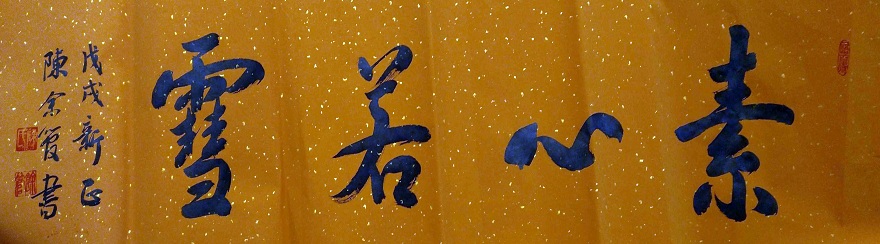 素心若雪
戊戌新正
陳余復書